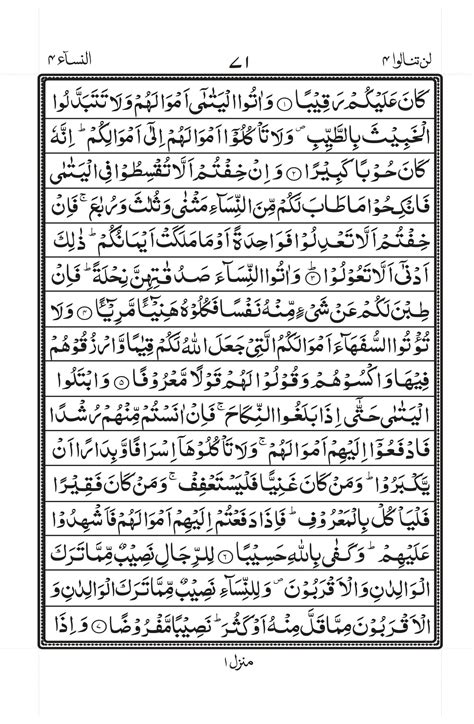 لن تنالوا ۴ ۷۱ النسآء ۴
كَانَ عَلَيْكُمْ رَقِيْبًا ۝۱ وَاٰتُوا الْيَتٰمٰٓى اَمْوَالَهُمْ وَلَا تَتَبَدَّلُوا
الْخَبِيْثَ بِالطَّيِّبِ ۪ وَلَا تَاْكُلُوْٓا اَمْوَالَهُمْ اِلٰٓى اَمْوَالِكُمْ ؕ اِنَّهٗ
كَانَ حُوْبًا كَبِيْرًا ۝۲ وَاِنْ خِفْتُمْ اَلَّا تُقْسِطُوْا فِي الْيَتٰمٰى
فَانْكِحُوْا مَا طَابَ لَكُمْ مِّنَ النِّسَآءِ مَثْنٰى وَثُلٰثَ وَرُبٰعَ ۚ فَاِنْ
خِفْتُمْ اَلَّا تَعْدِلُوْا فَوَاحِدَةً اَوْ مَا مَلَكَتْ اَيْمَانُكُمْ ؕ ذٰلِكَ
اَدْنٰٓى اَلَّا تَعُوْلُوْا ۝۳ وَاٰتُوا النِّسَآءَ صَدُقٰتِهِنَّ نِحْلَةً ؕ فَاِنْ
طِبْنَ لَكُمْ عَنْ شَيْءٍ مِّنْهُ نَفْسًا فَكُلُوْهُ هَنِيْٓـًٔا مَّرِيْٓـًٔا ۝۴ وَلَا
تُؤْتُوا السُّفَهَآءَ اَمْوَالَكُمُ الَّتِيْ جَعَلَ اللّٰهُ لَكُمْ قِيٰمًا وَّارْزُقُوْهُمْ
فِيْهَا وَاكْسُوْهُمْ وَقُوْلُوْا لَهُمْ قَوْلًا مَّعْرُوْفًا ۝۵ وَابْتَلُوا
الْيَتٰمٰى حَتّٰٓى اِذَا بَلَغُوا النِّكَاحَ ۚ فَاِنْ اٰنَسْتُمْ مِّنْهُمْ رُشْدًا
فَادْفَعُوْٓا اِلَيْهِمْ اَمْوَالَهُمْ ۚ وَلَا تَاْكُلُوْهَآ اِسْرَافًا وَّبِدَارًا اَنْ
يَّكْبَرُوْا ؕ وَمَنْ كَانَ غَنِيًّا فَلْيَسْتَعْفِفْ ۚ وَمَنْ كَانَ فَقِيْرًا
فَلْيَاْكُلْ بِالْمَعْرُوْفِ ؕ فَاِذَا دَفَعْتُمْ اِلَيْهِمْ اَمْوَالَهُمْ فَاَشْهِدُوْا
عَلَيْهِمْ ؕ وَكَفٰى بِاللّٰهِ حَسِيْبًا ۝۶ لِلرِّجَالِ نَصِيْبٌ مِّمَّا تَرَكَ
الْوَالِدٰنِ وَالْاَقْرَبُوْنَ ۪ وَلِلنِّسَآءِ نَصِيْبٌ مِّمَّا تَرَكَ الْوَالِدٰنِ وَ
الْاَقْرَبُوْنَ مِمَّا قَلَّ مِنْهُ اَوْ كَثُرَ ؕ نَصِيْبًا مَّفْرُوْضًا ۝۷ وَاِذَا
منزل ۱